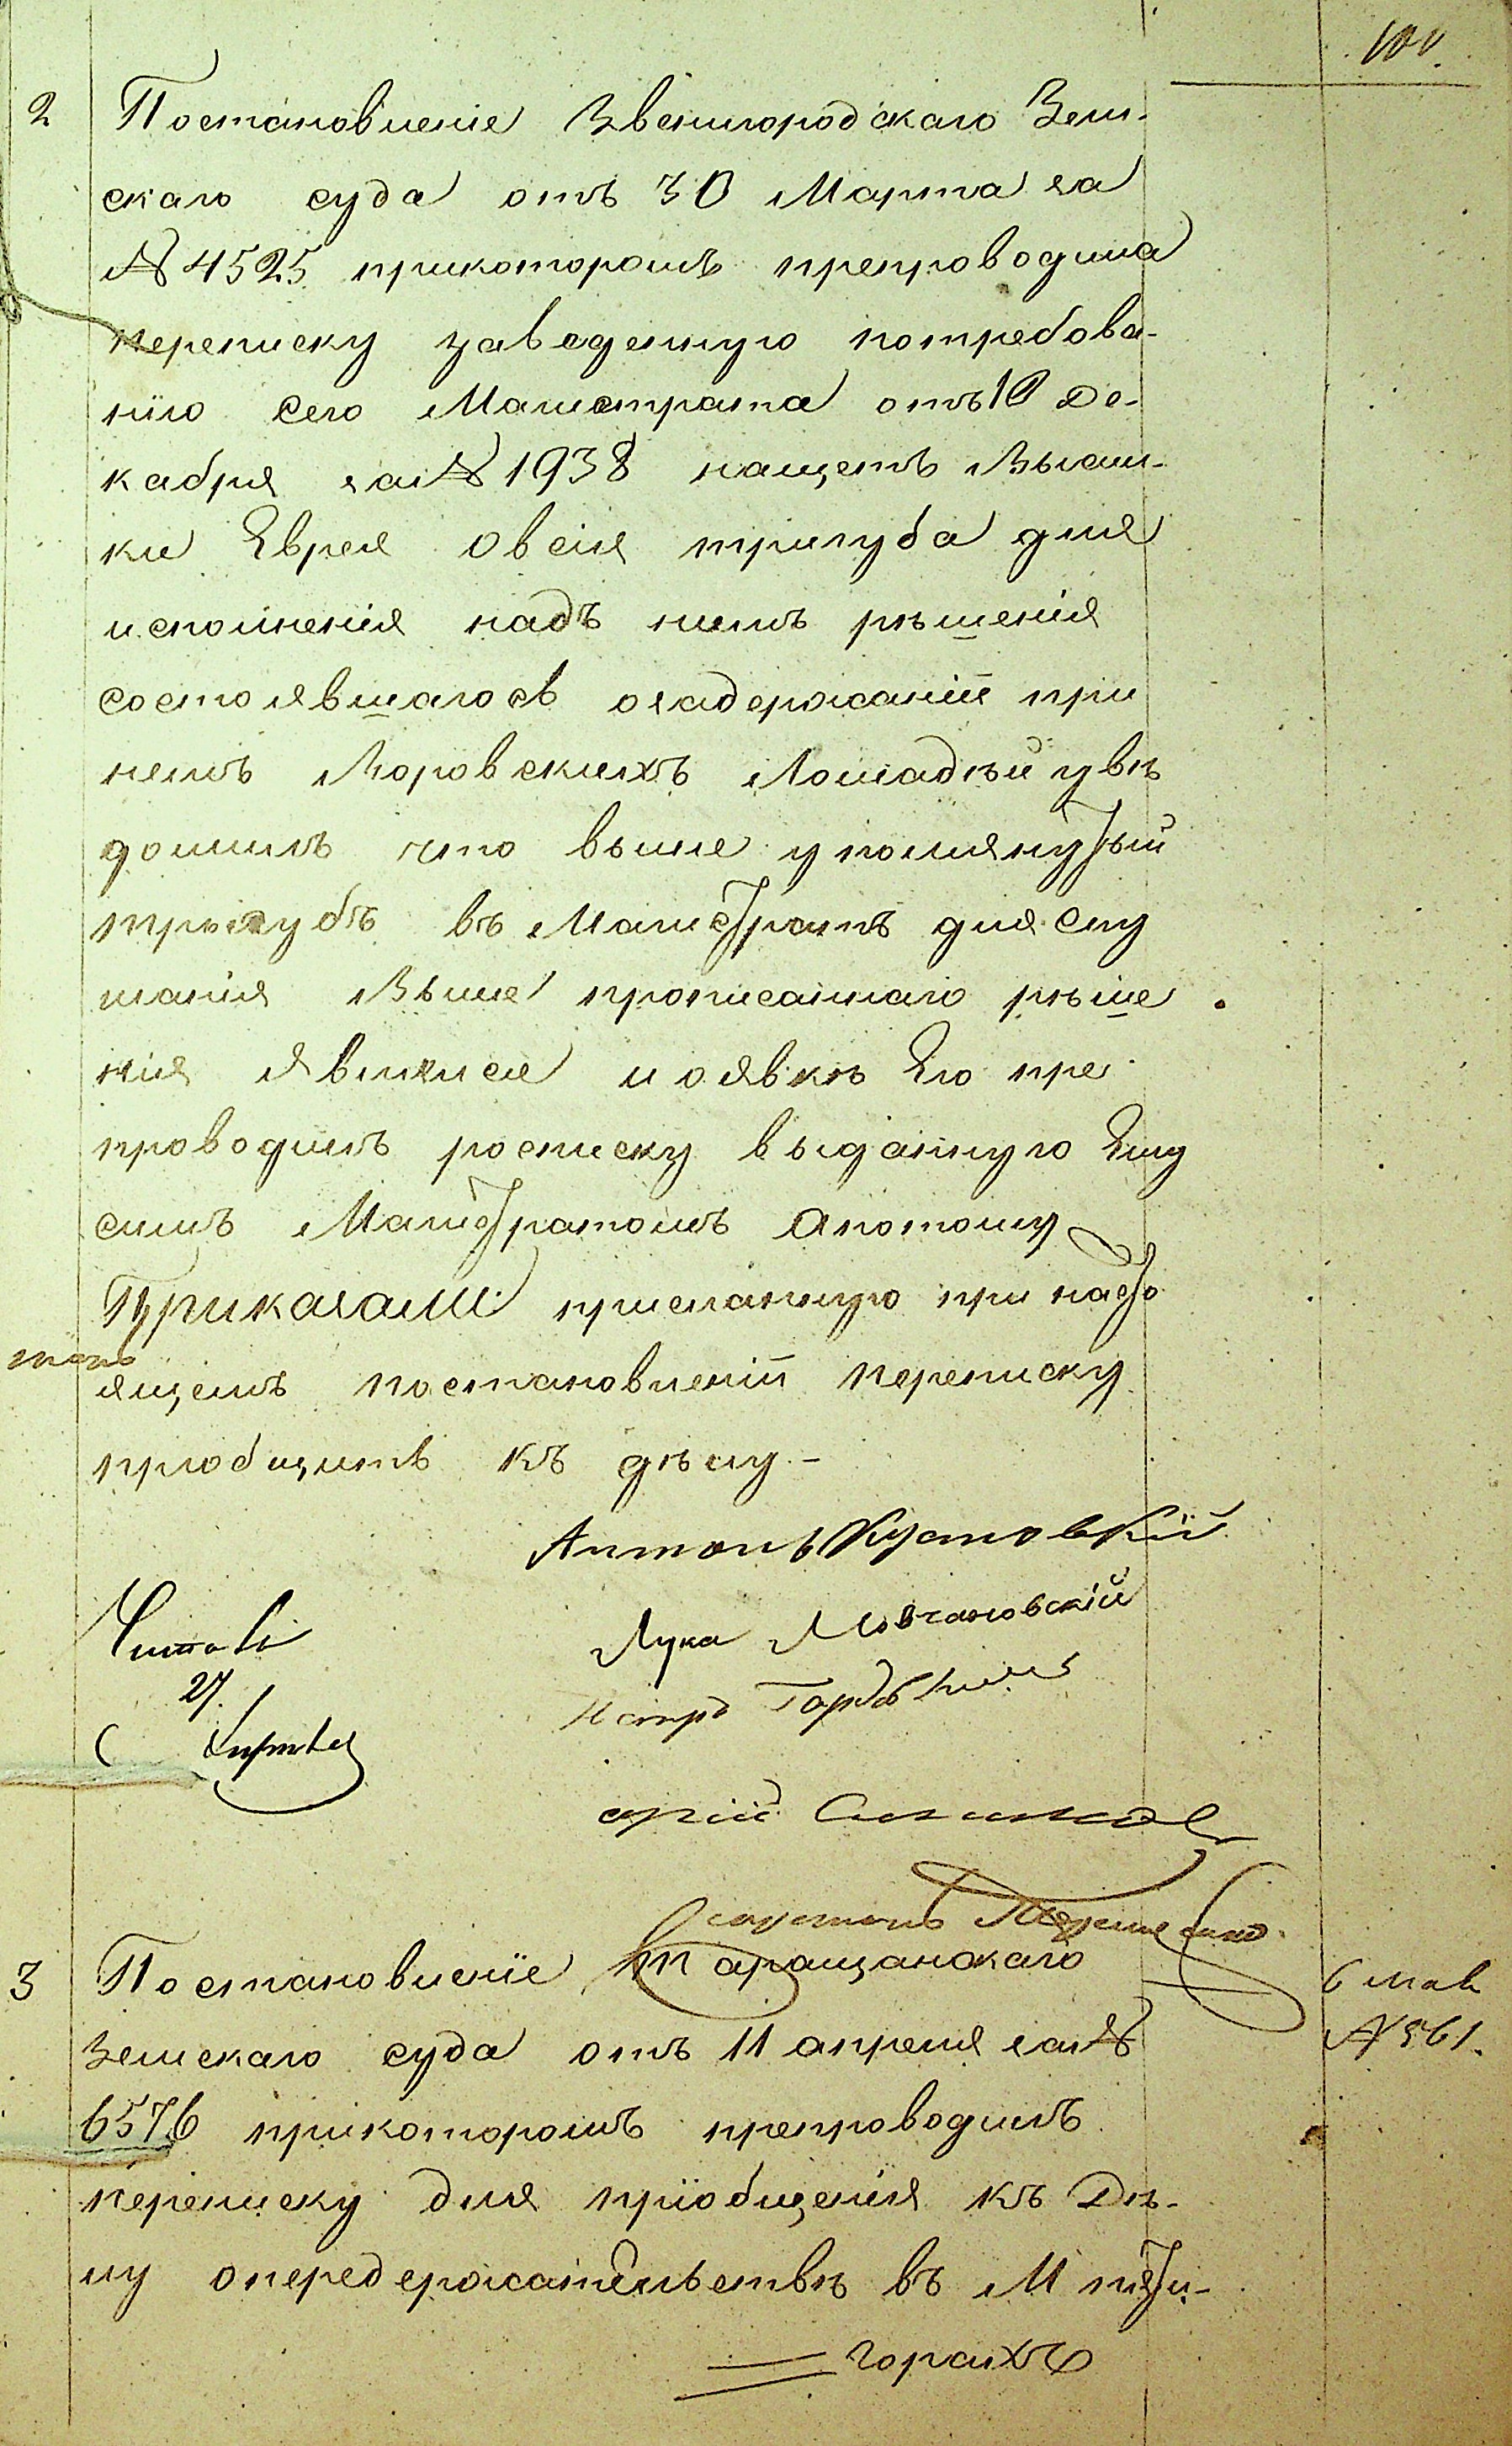 100.
2 Постановленіе Звенигородскаго Зем-
скаго суда отъ 30 Марта за
№ 4525 прикоторомъ препроводила
переписку заведенную потребова-
нію сего Магистрата отъ 10 де-
кабря за № 1938 нащетъ Высыл-
ки Еврея Овсія тригуба для
исполненія надъ нимъ рѣшенія
состоявшагось озадержаніи при
немъ Воровскихъ Лошадѣй увѣ
домилъ что выше упомянутый
тригубъ въ Магистратъ для слу
шанія Выше прописаннаго рѣше
нія Явился и оявкѣ Его пре
проводилъ росписку выданную Ему
симъ Магистратомъ апотому
Приказали присланную при насто
ящемъ постановленіи переписку
пріобщить къ дѣлу. –
Антонъ Кутовскій
Лука Мовчановскій
Петръ
27.
3 Постановленіе Таращанскаго
Земскаго суда отъ 11 апреля за №
6576 прикоторомъ препроводилъ
переписку для пріобщенія къ Дѣ-
лу опередержательствѣ въ М пяти-
горахъ
6 мая
№ 561.